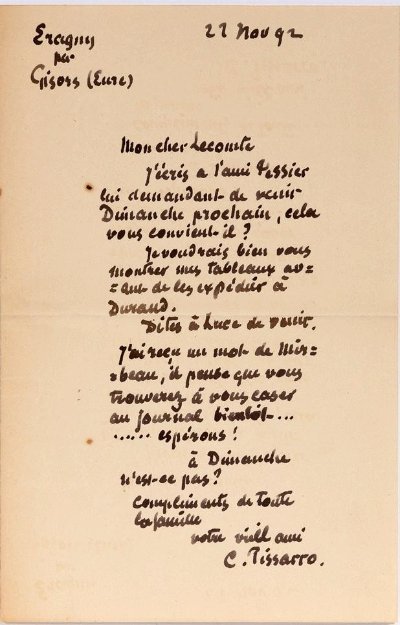 Eragny
par
Gisors (Eure)
22 Nov 92
Mon cher Lecomte
J'écris a l'ami Tessier
lui demandant de venir
Dimanche prochain, cela
vous convient-il ?
Je voudrais bien vous
montrer mes tableaux av=
=ant de les expédier à
Durand.
Dites à Luce de venir.
J'ai reçu un mot de Mir=
=beau, il pense que vous
trouverez à vous caser
au journal bientôt....
...... espérons !
à Dimanche
n'est-ce pas?
Compliments de toute
la famille
votre vieil ami
C. Pissarro.